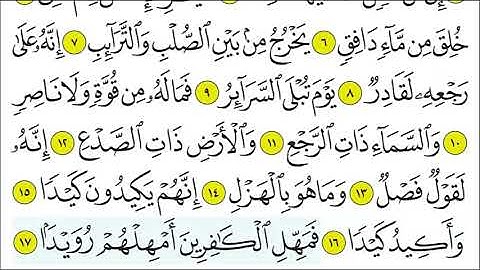 خُلِقَ مِن مَّآءٍ دَافِقٍ ٦ يَخْرُجُ مِنۢ بَيْنِ ٱلصُّلْبِ وَٱلتَّرَآئِبِ ٧ إِنَّهُۥ عَلَىٰ
رَجْعِهِۦ لَقَادِرٌ ٨ يَوْمَ تُبْلَى ٱلسَّرَآئِرُ ٩ فَمَا لَهُۥ مِن قُوَّةٍ وَلَا نَاصِرٍ
١٠ وَٱلسَّمَآءِ ذَاتِ ٱلرَّجْعِ ١١ وَٱلْأَرْضِ ذَاتِ ٱلصَّدْعِ ١٢ إِنَّهُۥ
لَقَوْلٌ فَصْلٌ ١٣ وَمَا هُوَ بِٱلْهَزْلِ ١٤ إِنَّهُمْ يَكِيدُونَ كَيْدًا ١٥
وَأَكِيدُ كَيْدًا ١٦ فَمَهِّلِ ٱلْكَٰفِرِينَ أَمْهِلْهُمْ رُوَيْدًۢا ١٧